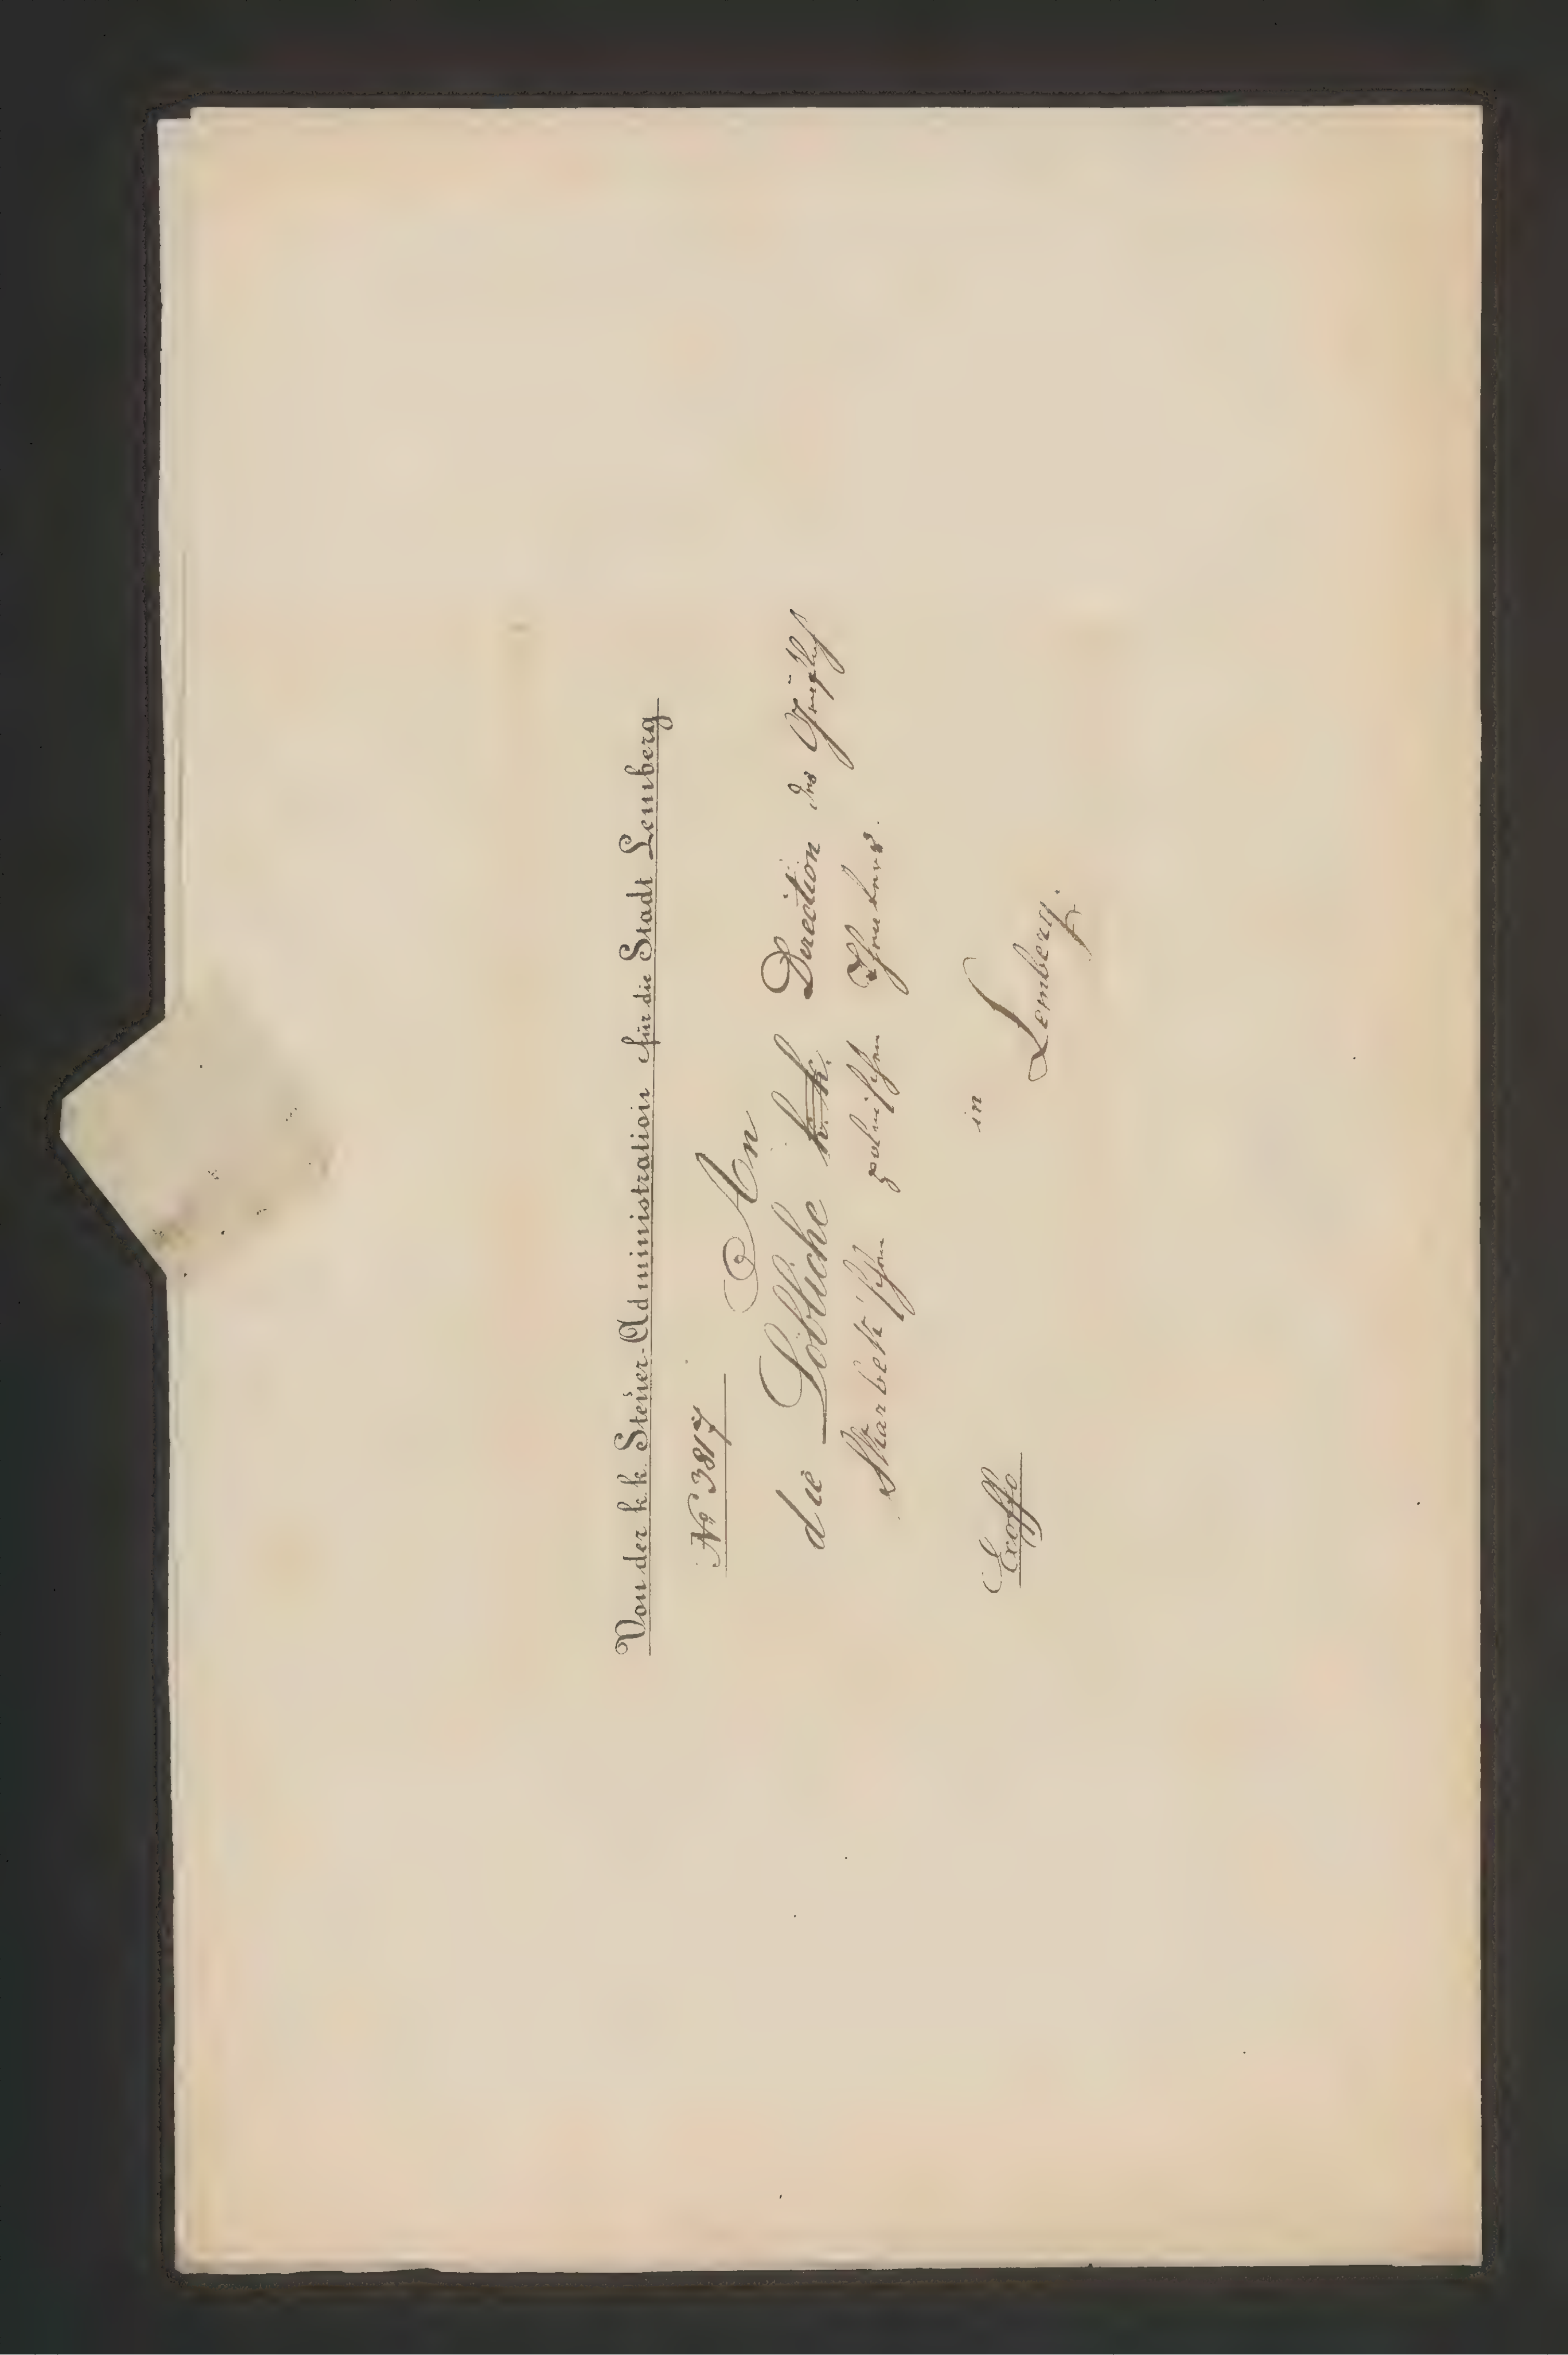 Von der k. k. Steuer-Administration für die Stadt Lemberg
No 3817
An
die Löbliche k. k. Direction des Gräflich
Skarbek'schen polnischen Theaters.
in
Lemberg.
Exoffo